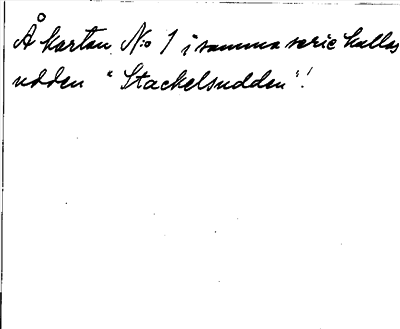 Å kartan N:o 1 i samma serie kallas
udden "Stackelsudden"!